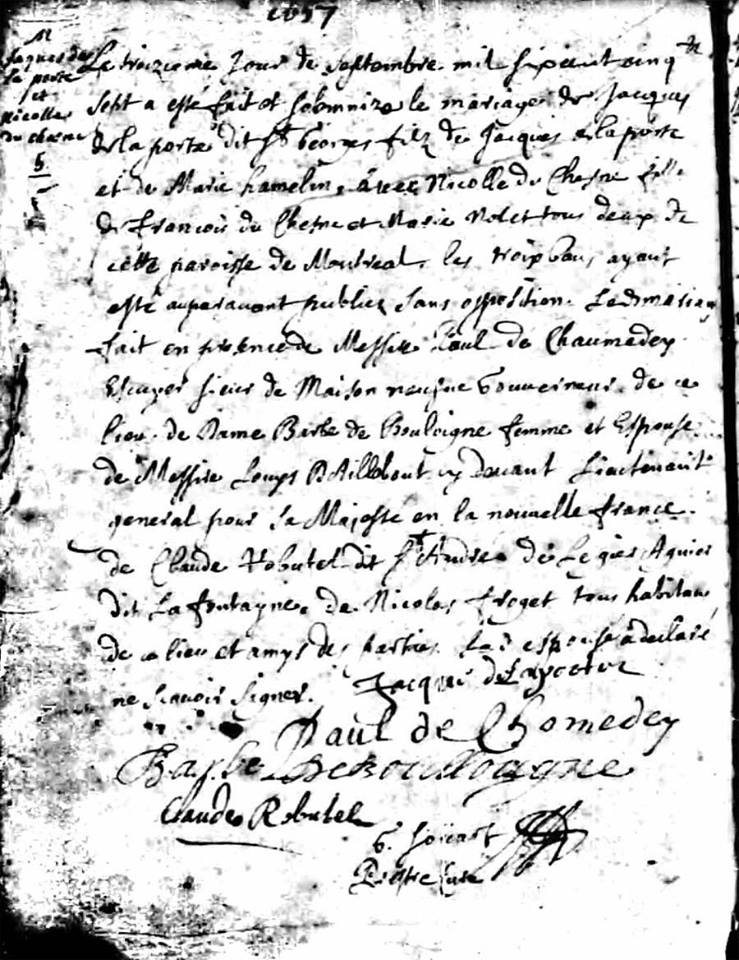 1657
M
Jaques de
la porte
et
Nicolle
du chesne
5
Le troizieme Jour de septembre mil six cent cinq
sept a esté fait et solemnizé le mariage de Jacques
de la porte dit St Georges filz de Jacques de la porte
et de Marie hamelin, avec Nicolle du Chesne fille
de francois du Chesne et Marie Nolet tous deux de
cette paroisse de Montreal, les troix bans ayant
esté auparavant publiez sans opposition. Led mariage
fait en presence de Messire Paul de Chaumedey
Escuyer sieur de Maison neufve Gouverneur de ce
lieu. de Dame Barbe de Bouloigne femme et Espouse
de Messire Louys Daillebout cy devant Lieutenant
general pour sa Majesté en la nouvelle france.
de Claude Robutel dit St André de Legier Aguier
dit La fontayne, de Nicolas froget tous habitans
de ce lieu et amys des parties. Lad espouse a declaré
ne scavoir signer. Jacque de Laporte
Paul de Chomedey
Barbe De Boullongne
Claude Robutel
G. Soüart
Prestre Curé